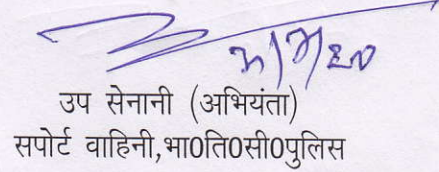 उप सेनानी (अभियंता)
सपोर्ट वाहिनी,भा0ति0सी0पुलिस